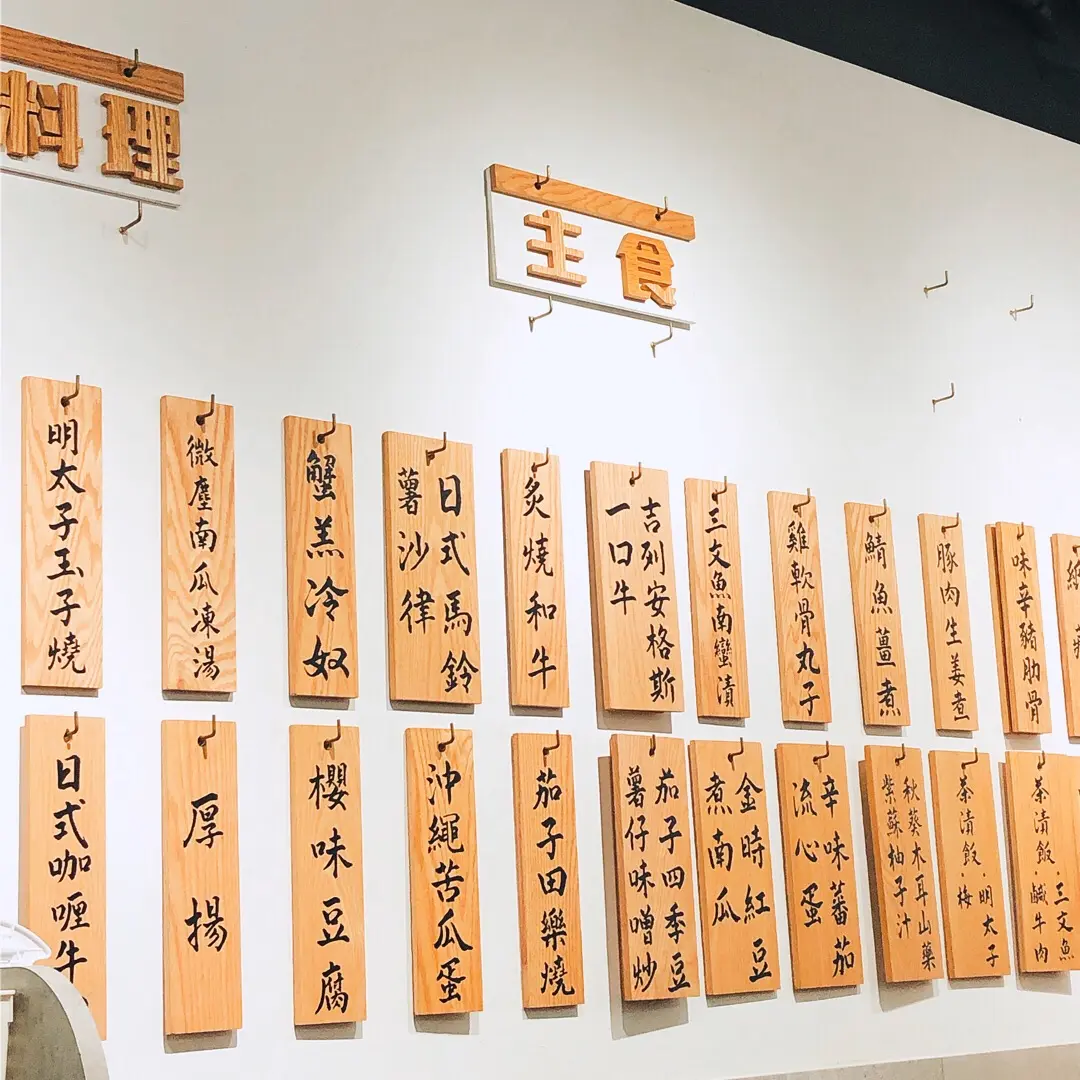 料理
主食
明太子玉子燒
微塵南瓜凍湯
蟹羔冷奴
日式馬鈴
薯沙律
炙燒和牛
吉列安格斯
一口牛
三文魚南蠻漬
雞軟骨丸子
鯖魚薑煮
豚肉生姜煮
味辛豬肋骨
日式咖喱牛
厚揚
櫻味豆腐
沖繩苦瓜蛋
茄子田樂燒
茄子四季豆
薯仔味噌炒
金時紅豆
煮南瓜
辛味蕃茄
流心蛋
秋葵木耳山藥
紫蘇柚子汁
茶漬飯·明太子
梅
茶漬飯·三文魚
鹹牛肉